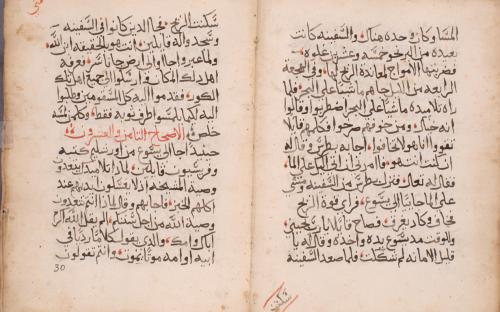 المسا وكان وحده هناك والسفينه كانت
بعيده من البر نحو خمسه وعشرين غلوه
فضربتها الامواج لمعاندة الريح لها وفي الهجعه
الرابعه من الليل جاهم ماشيا علي البحر فلما
راه تلاميده ماشيا علي البحر اضطربوا وقالوا
انه خيال ومن خوفهم صرخوا فكلمهم قايلا
تقووا انا هو لا تخافوا اجابه بطرس وقال له
ان كنت انت هو فامرني ان اتي اليك علي الما
فقال له تعال فنزل بطرس من السفينه ومشي
علي الما جاييا الي يسوع فراي قوة الريح
فخاف وكاد يغرق فصاح قايلا يارب نجيني
وللوقت مد يسوع يده واخده وقال له يا
قليل الامانه لم شككت فلما صعد السفينة
سكنت
سكنت الريح فجا الدين كانوا في السفينه
وسجدوا له قايلين انت هو بالحقيقه ابن الله
ولما عبروا جاوا الي ارض فعرفه
اهل دلك المكان وارسلوا الي جميع اهل تلك
الكور فقدموا اليه كل المسقومين وطلبوا
اليه لكيما يلمسوا طرف توبه فقط وكل من لمسه
خلص الاصحاح الثامن والعشرون
حينيد جا الي يسوع من اورشليم كتبه
وفريسيون قايلين لمادا تلاميدك يتعدون
وصية المشيخه اد لا يغسلون ايديهم عند
اكلهم الخبز فاجابهم وقال لمادا انتم تتعدون
وصية الله من اجل سنتكم الم يقل الله اكرم
اباك وامك والدي يقول كلاما رديا في
ابيه او امه موتا يموت وانتم تقولون
30